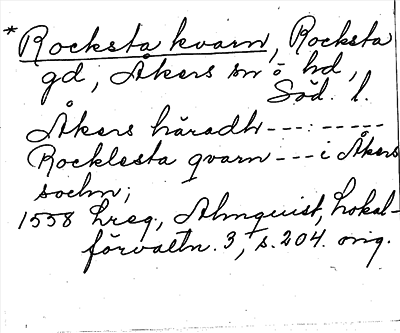 * Rocksta kvarn, Rocksta
gd, Åkers sn o hd,
Söd. l.
Åkers häradh ---:-----
Rocklesta qvarn --- i Åkers
sochn;
1558 hreg, Almquist, Lokal-
förvaltn. 3, s. 204. orig.